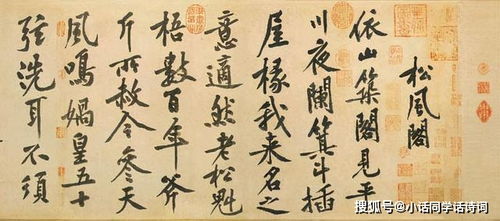 松風閣
依山築閣見平
川夜闌箕斗插
屋椽我來名之
意適然老松魁
梧數百年斧
斤所赦今參天
風鳴媧皇五十
弦洗耳不須
搜狐号@小话同学话诗词